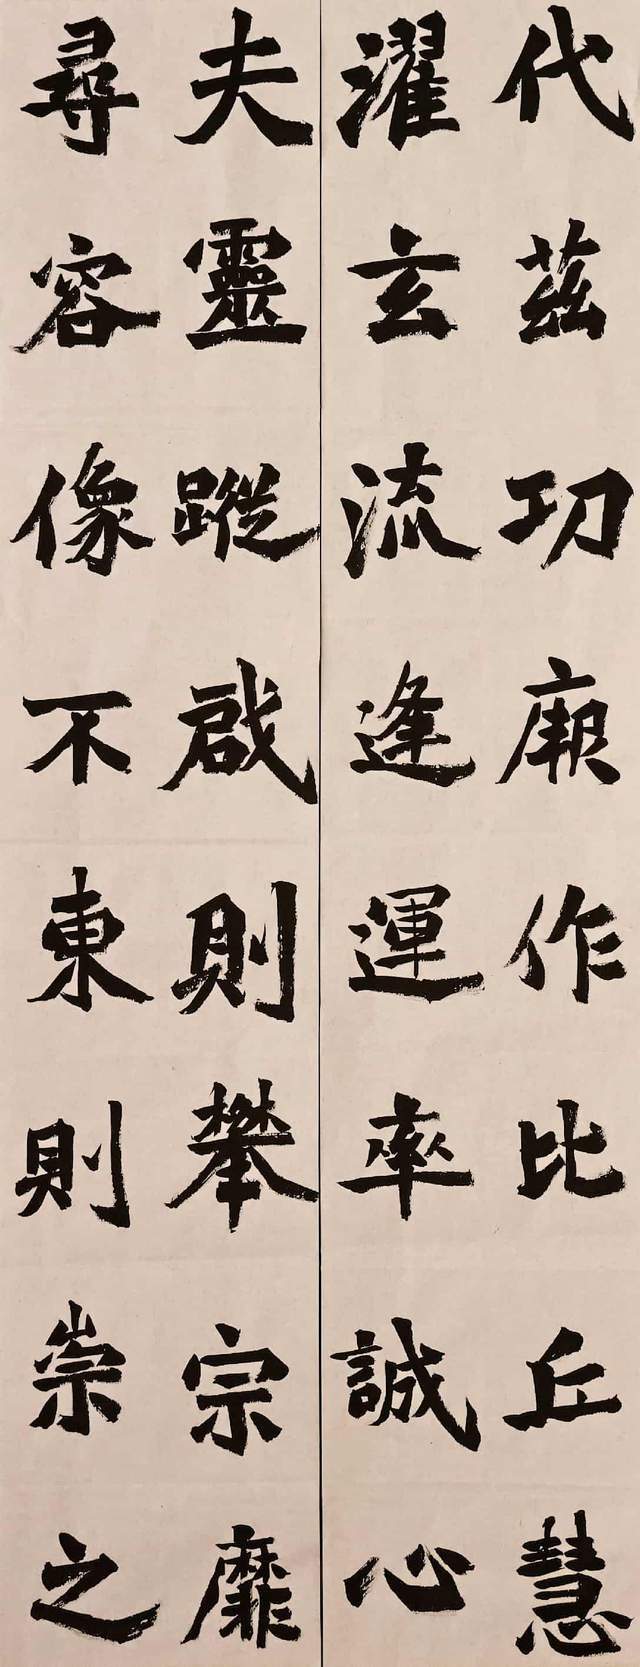 代茲功厥作比丘慧
濯玄流逢運率誠心
夫靈蹤啟則攀宗靡
尋容像不東則崇之